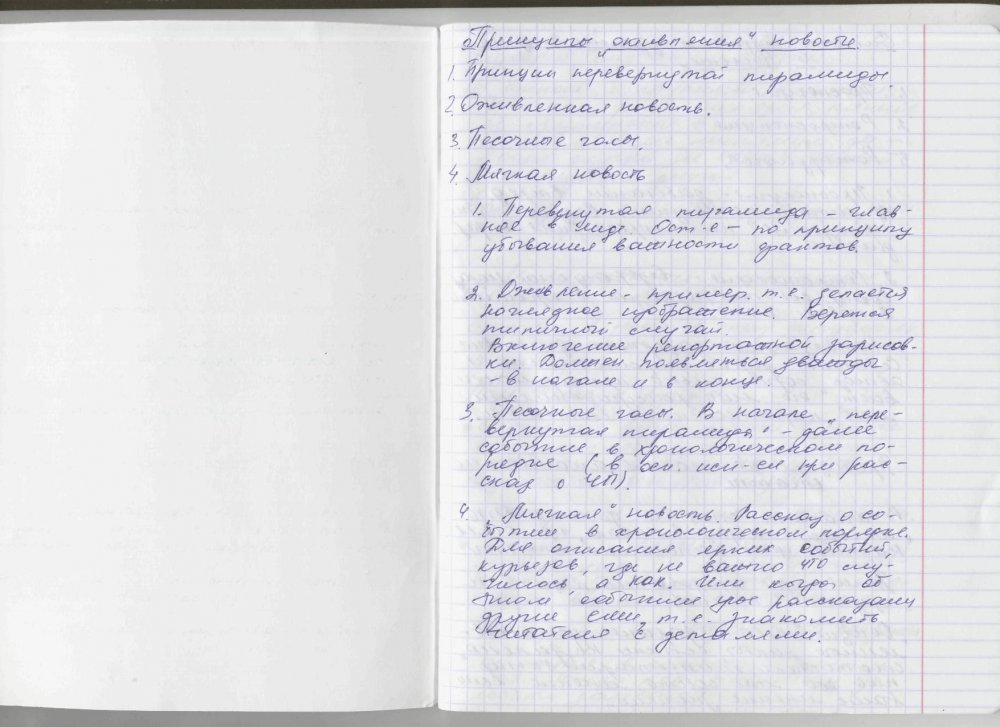 Принципы "оживления" новости.
1. Принцип перевернутой пирамиды.
2. Оживленная новость.
3. Песочные часы.
4. Мягкая новость
1. Перевернутая пирамида – глав-
ное в лиде. Ост-е – по принципу
убывания важности фактов.
2. Оживление – пример. т.е. делается
наглядное изображение. Берется
типичный случай.
Включение репортажной зарисов-
ки. Должен появляться дважды
– в начале и в конце.
3. Песочные часы. В начале "пере-
вернутая пирамида" – далее
событие в хронологическом по-
рядке (в осн. исп-ся при рас-
сказ о ЧП).
4. "Мягкая" новость. Рассказ о со-
бытии в хронологическом порядке.
Для описания ярких событий,
курьезов, где не важно что слу-
чилось, а как. Или когда об
этом событии уже рассказали
другие СМИ, т.е. знакомить
читателя с деталями.